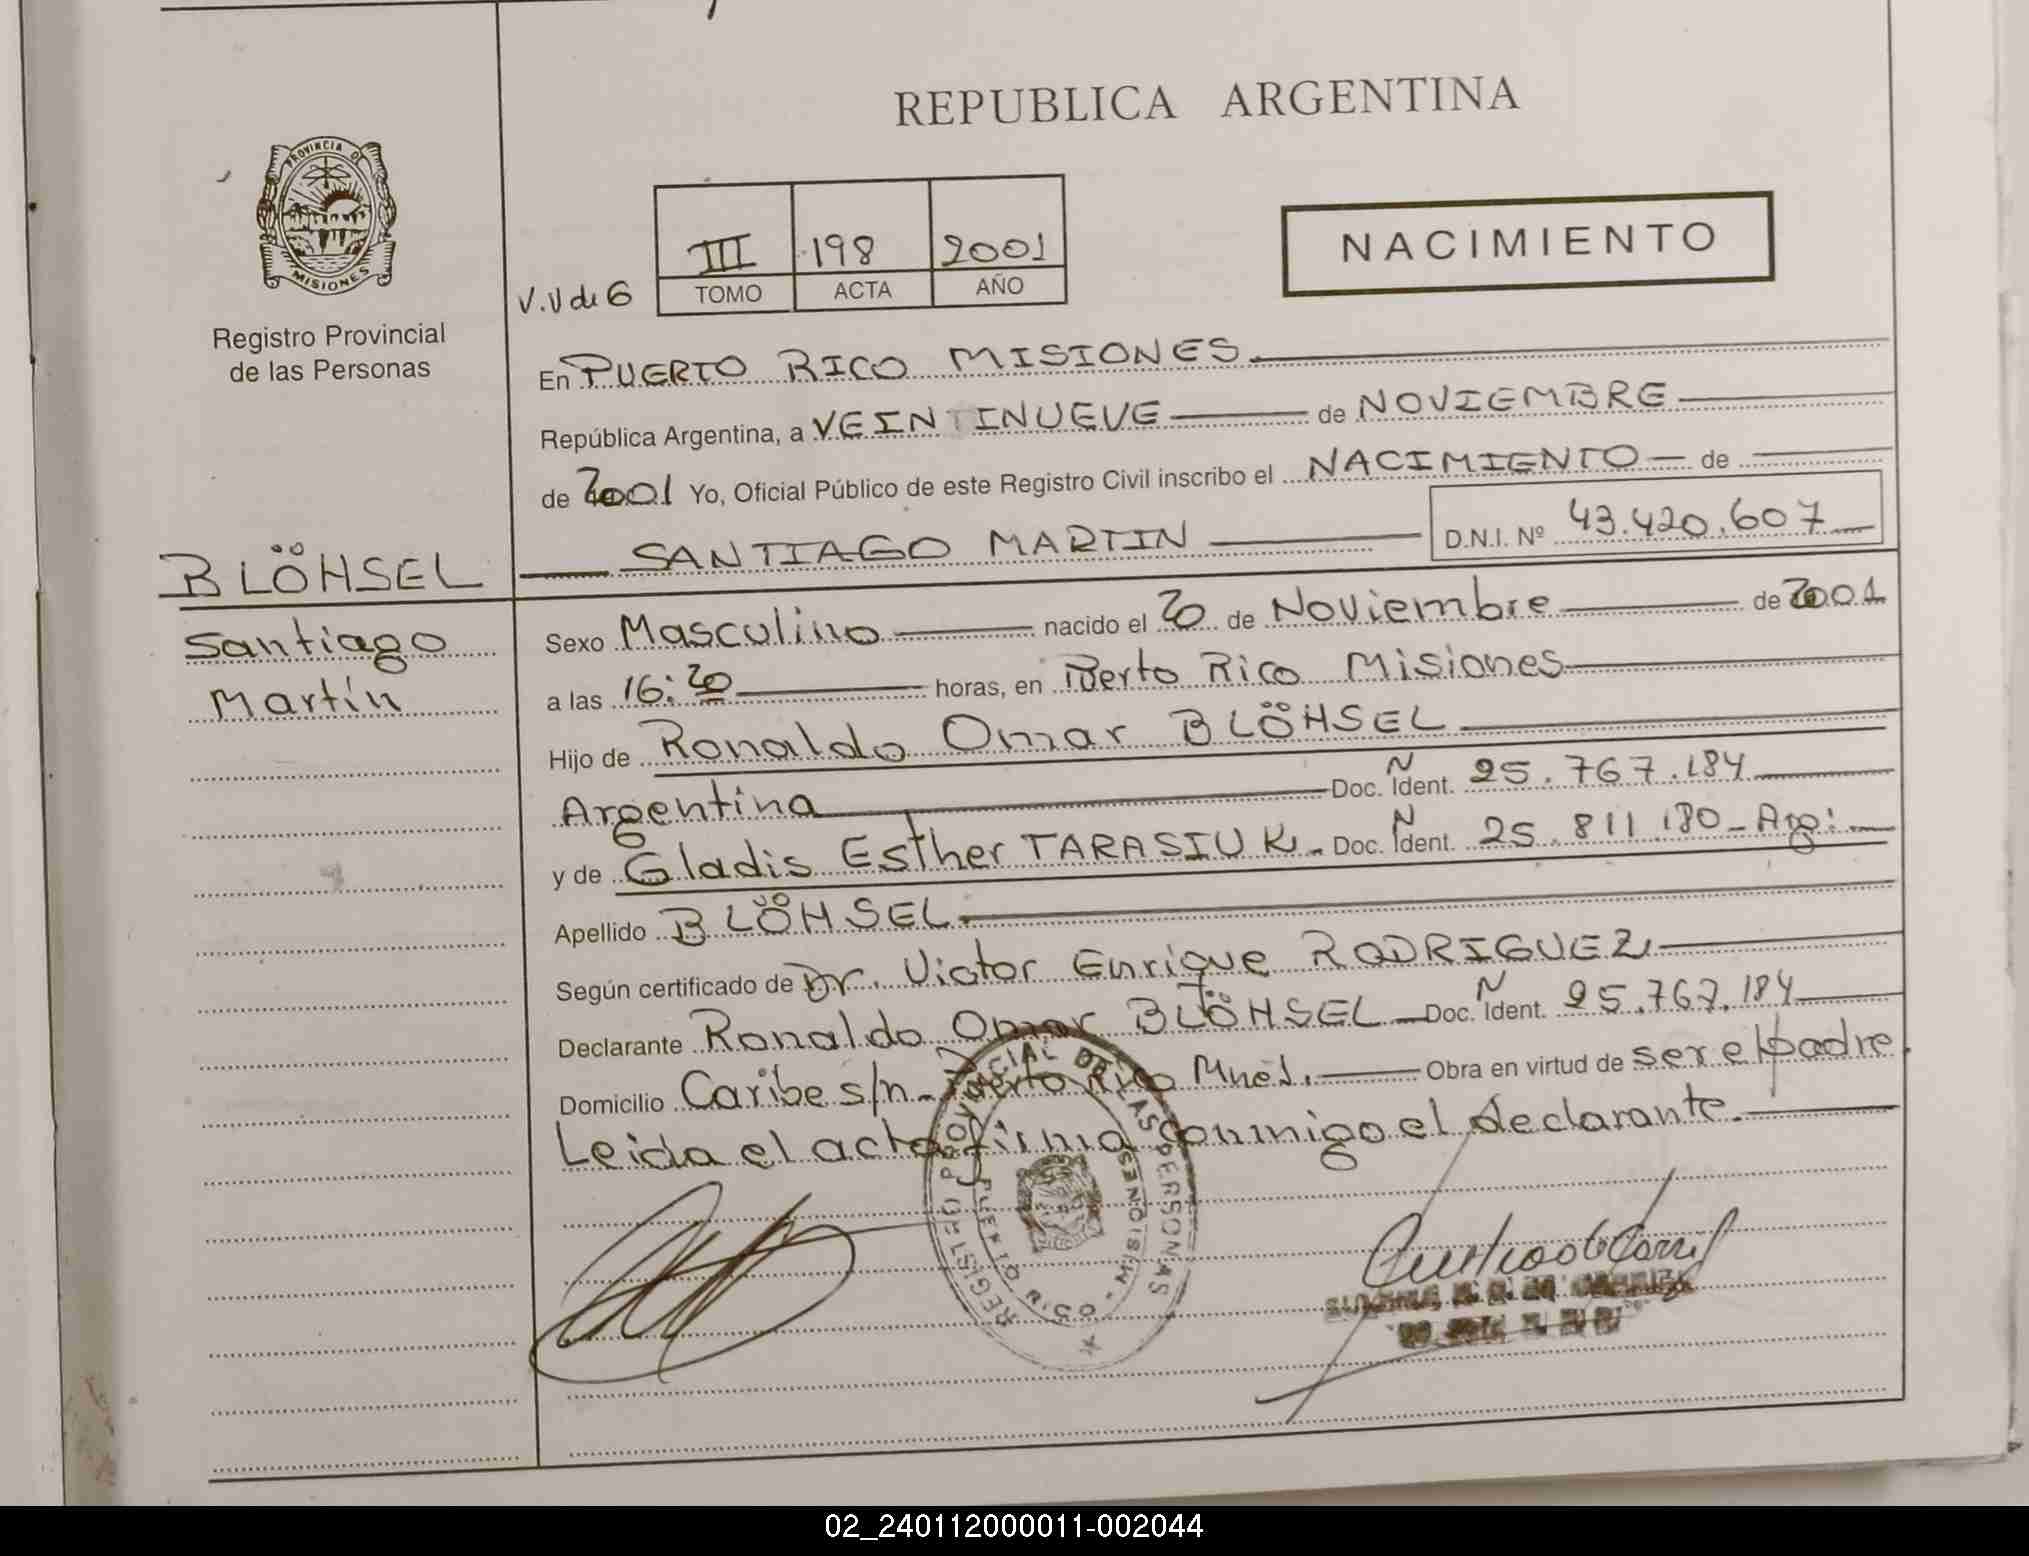 REPUBLICA ARGENTINA
PROVINCIA DE
MISIONES
Registro Provincial
de las Personas
V.V de 6
III 198 2001
TOMO ACTA AÑO
NACIMIENTO
En PUERTO RICO MISIONES
República Argentina, a VEINTINUEVE de NOVIEMBRE
de 2001 Yo, Oficial Público de este Registro Civil inscribo el NACIMIENTO de
SANTIAGO MARTIN D.N.I. Nº 43.420.607
BLÖHSEL
Santiago
Martín
Sexo Masculino nacido el 20 de Noviembre de 2001
a las 16:20 horas, en Puerto Rico Misiones
Hijo de Ronaldo Omar BLÖHSEL
Argentina Doc. Ident. N 25.767.184
y de Gladis Esther TARASIUK. Doc. Ident. N 25.811.180 - Arg:
Apellido BLÖHSEL
Según certificado de Dr. Victor Enrique RODRIGUEZ
Declarante Ronaldo Omar BLÖHSEL Doc. Ident. N 25.767.184
Domicilio Caribe s/n - Puerto Rico Mnes. Obra en virtud de ser el padre.
Leida el acta firma conmigo el declarante.
REGISTRO PROVINCIAL DE LAS PERSONAS
PUERTO RICO - MISIONES
02_240112000011-002044